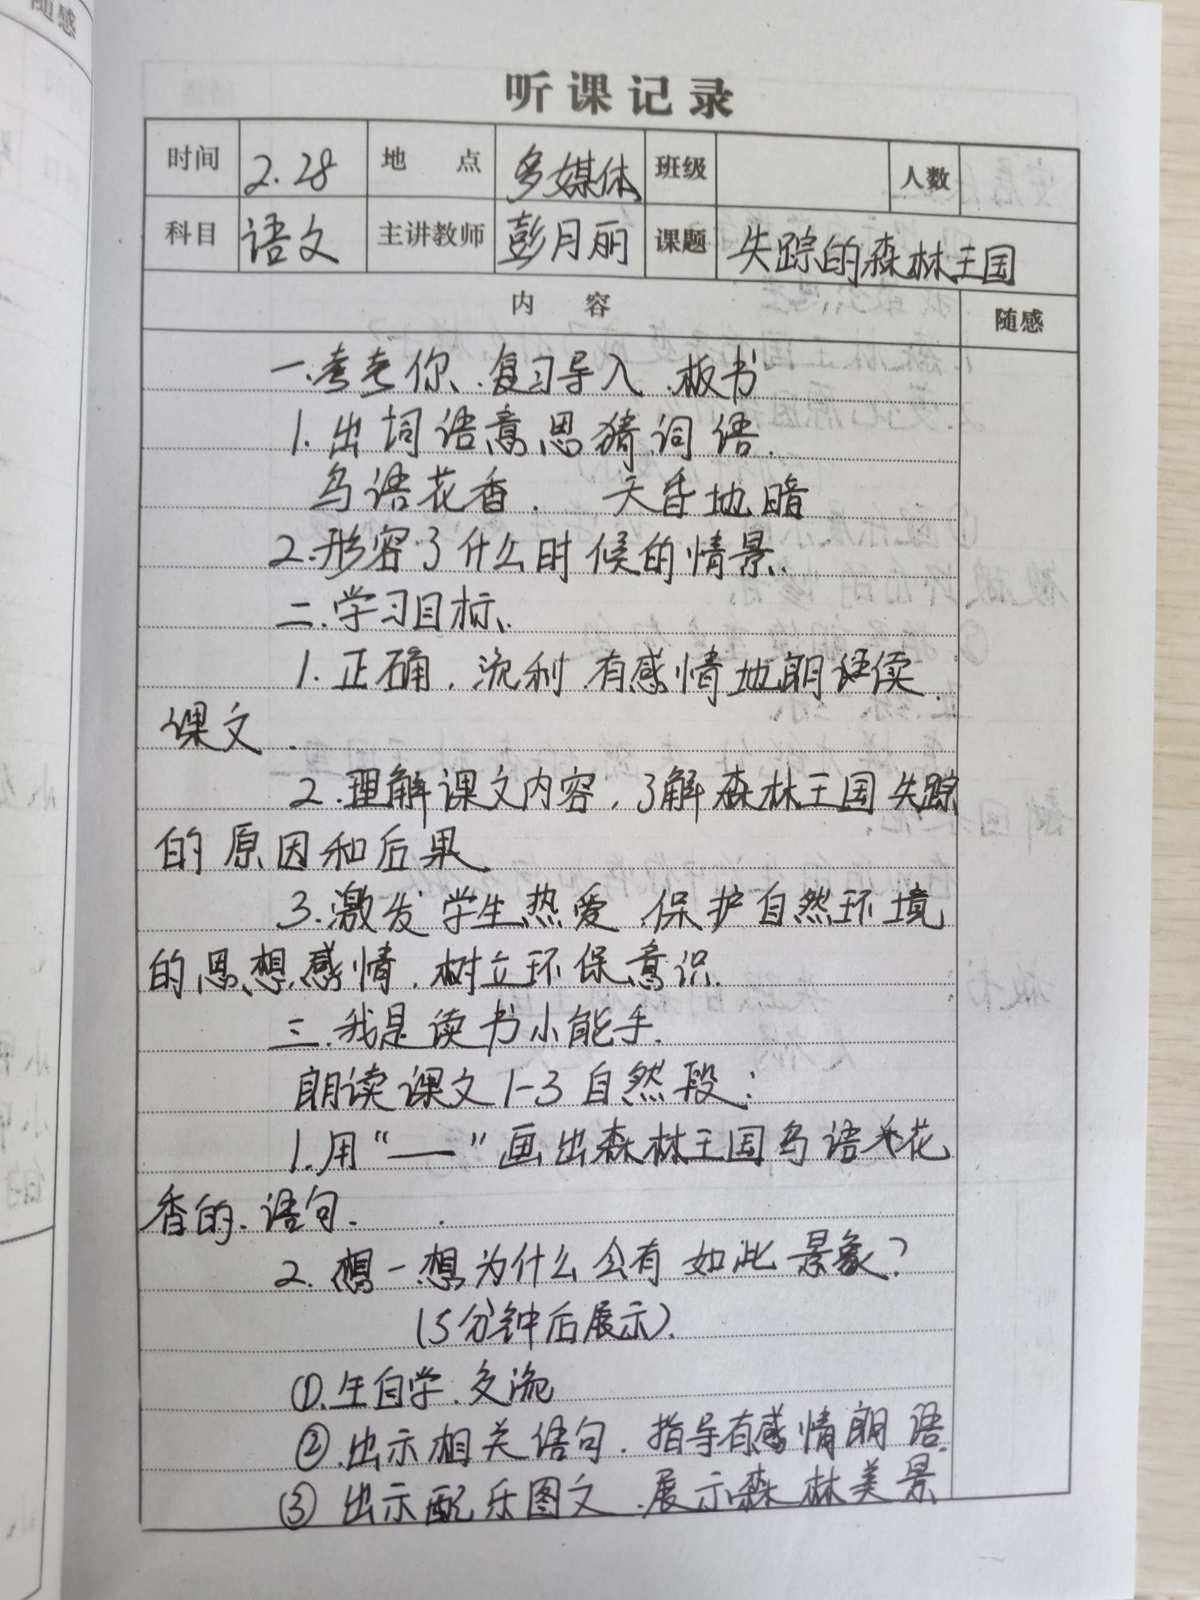 随感
听课记录
时间 2.28 地点 多媒体 班级 人数
科目 语文 主讲教师 彭月丽 课题 失踪的森林王国
内容 随感
一.考考你、复习导入、板书
1.出词语意思猜词语.
鸟语花香. 天昏地暗
2.形容了什么时候的情景.
二.学习目标、
1.正确.流利.有感情地朗读
课文.
2.理解课文内容,了解森林王国失踪
的原因和后果
3.激发学生热爱.保护自然环境
的思想感情.树立环保意识.
三.我是读书小能手.
朗读课文1-3自然段:
1.用“——”画出森林王国鸟语花
香的.语句.
2.想一想为什么会有如此景象?
(5分钟后展示).
①.生自学.交流
②.出示相关语句.指导有感情朗语.
③出示配乐图文.展示森林美景